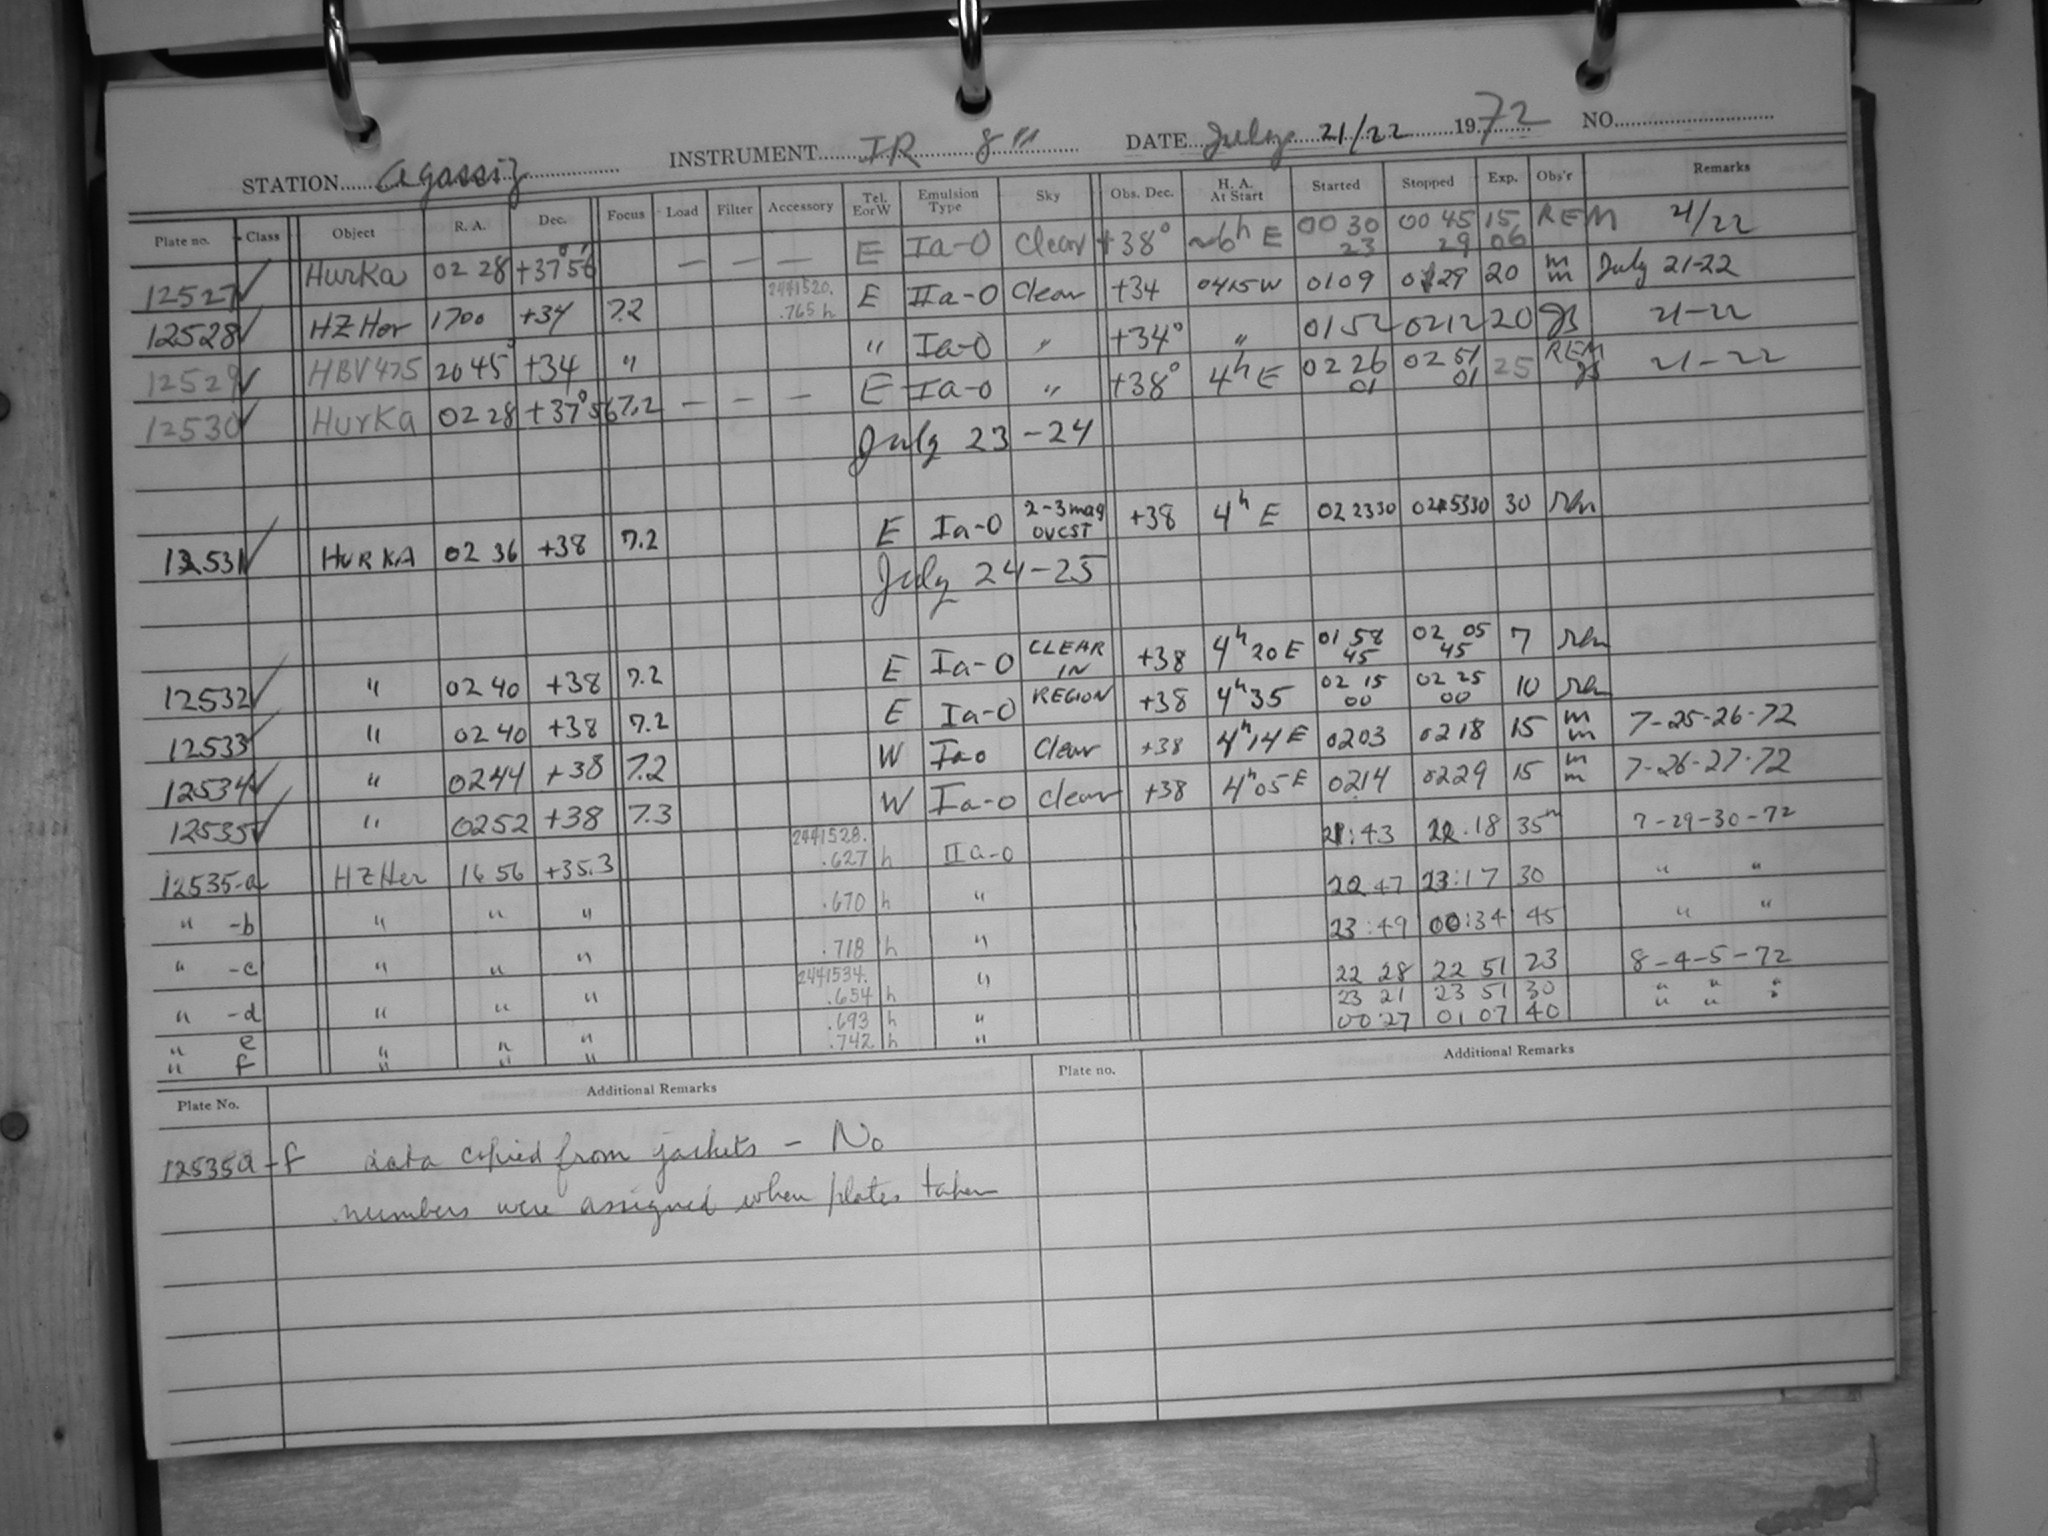 STATION Agassiz INSTRUMENT IR 8" DATE July 21/22 1972 NO.
Plate no. Class Object R. A. Dec. Focus Load Filter Accessory Tel. E or W Emulsion Type Sky Obs. Dec. H. A. At Start Started Stopped Exp. Obs'r Remarks
12527 ✓ HurKa 02 28 +37°56' — — — E Ia-O Clear +38° ~6h E 00 30 23 00 45 29 15 06 REM 21/22
12528 ✓ HZ Her 1700 +34 7.2 2441520. .765 h E IIa-O Clear +34 0415W 0109 0129 20 mm July 21-22
12529 ✓ HBV 475 20 45 +34 " " Ia-O " +34° " 0152 0212 20 21-22
12530 ✓ HurKa 02 28 +37°56 7.2 — — — E Ia-O " +38° 4h E 02 26 01 02 51 01 25 REM 21-22
July 23-24
12531 ✓ HURKA 02 36 +38 7.2 E Ia-O 2-3 mag OVCST +38 4h E 02 2330 02 5330 30 rem
July 24-25
12532 ✓ " 02 40 +38 7.2 E Ia-O CLEAR IN +38 4h 20 E 01 58 45 02 05 45 7 rem
12533 ✓ " 02 40 +38 7.2 E Ia-O REGION +38 4h 35 02 15 00 02 25 00 10 rem
12534 ✓ " 0244 +38 7.2 W Iao Clear +38 4h 14 E 0203 0218 15 mm 7-25-26-72
12535 ✓ " 0252 +38 7.3 W Ia-O clear +38 4h 05 E 0214 0229 15 mm 7-26-27-72
12535-a HZ Her 16 56 +35.3 2441528. .627 h IIa-O 21:43 22.18 35m 7-29-30-72
" -b " " " .670 h " 22 47 23:17 30 " "
" -c " " " .718 h " 23:49 00:34 45 " "
" -d " " " 2441534. .654 h " 22 28 22 51 23 8-4-5-72
" e " " " .693 h " 23 21 23 51 30 " " "
" f " " " .742 h " 00 27 01 07 40 " " "
Plate No. Additional Remarks Plate no. Additional Remarks
12535a-f data copied from jackets - No
numbers were assigned when plates taken